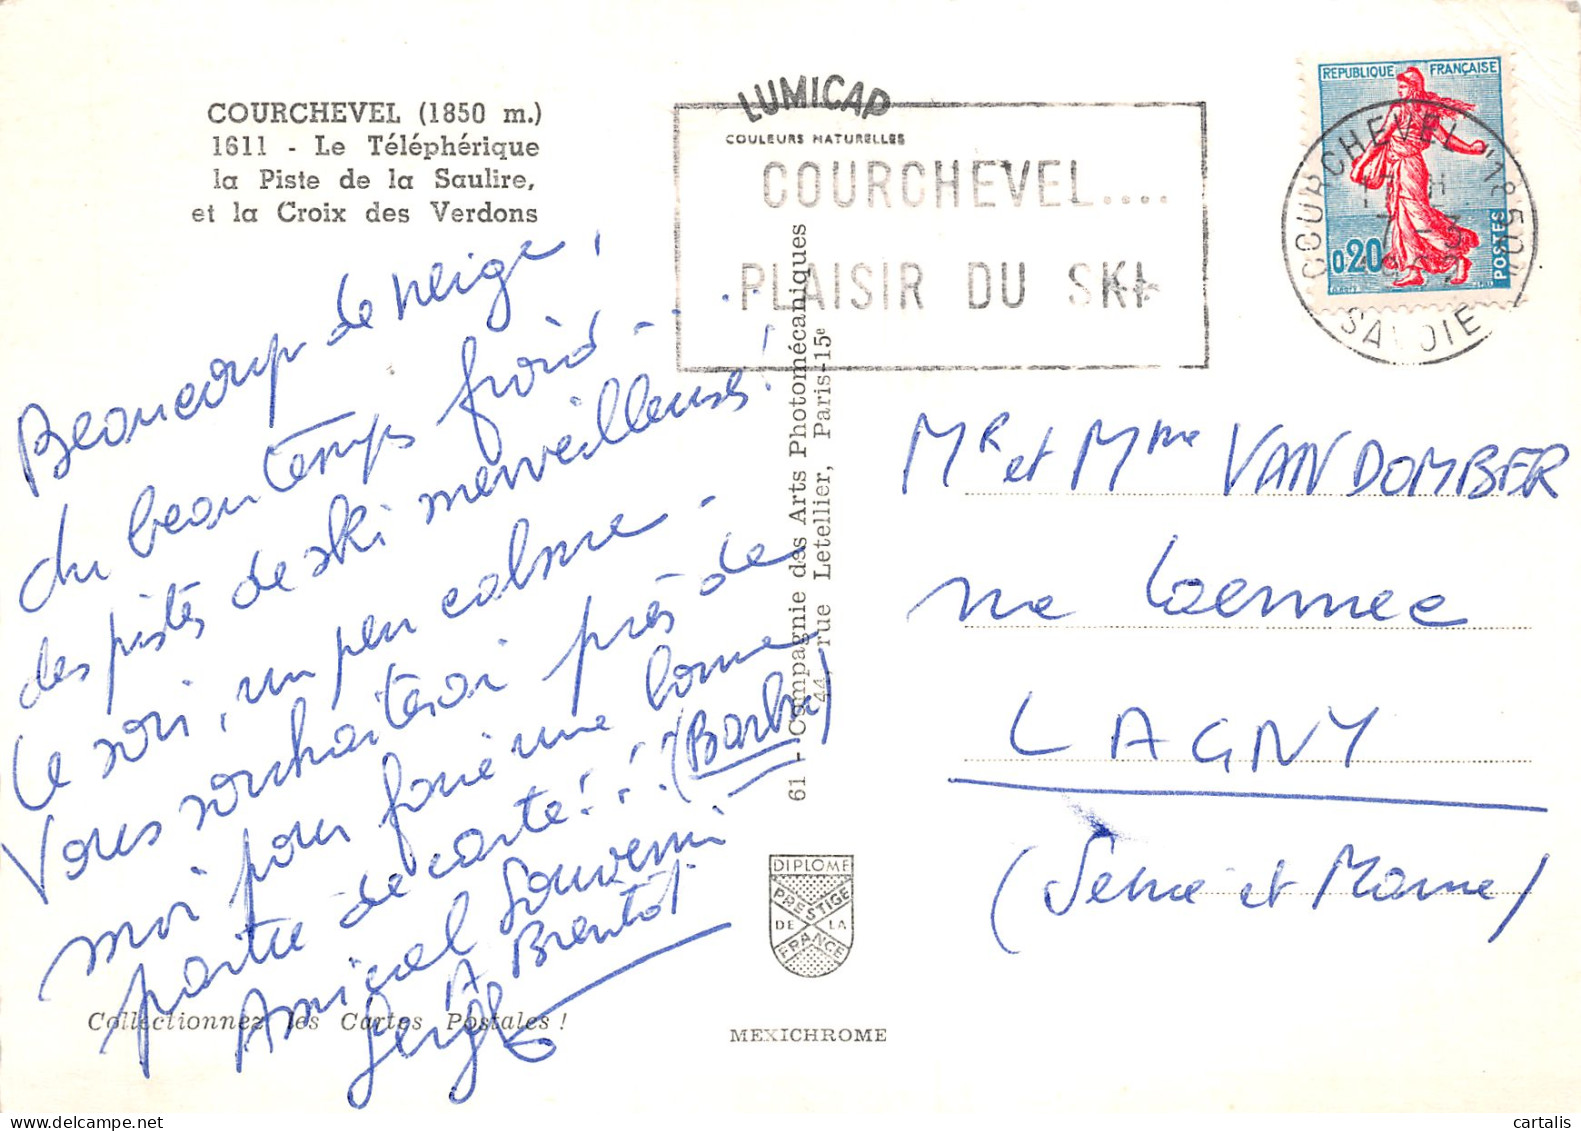 COURCHEVEL (1850 m.)
1611 - Le Téléphérique
la Piste de la Saulire,
et la Croix des Verdons
LUMICAP
COULEURS NATURELLES
COURCHEVEL....
PLAISIR DU SKI
REPUBLIQUE FRANÇAISE
0,20
POSTES
COURCHEVEL "1850"
17 H
7 - 3
SAVOIE
Beaucoup de neige,
du beau temps froid - - - -
des pistes de ski merveilleuses!
Le soir, un peu calme -
Vous souhaiterai près de
moi pour faire une bonne
partie de carte!!! (Barbu)
Amical Souvenir
A Brentôt
Serge
61 - Compagnie des Arts Photomécaniques
44, rue Letellier, Paris-15e
Mr et Mme VANDOMBER
rue Laennec
LAGNY
(Seine et Marne)
DIPLOME
PRESTIGE
DE LA
FRANCE
Collectionnez les Cartes Postales !
MEXICHROME
cartalis